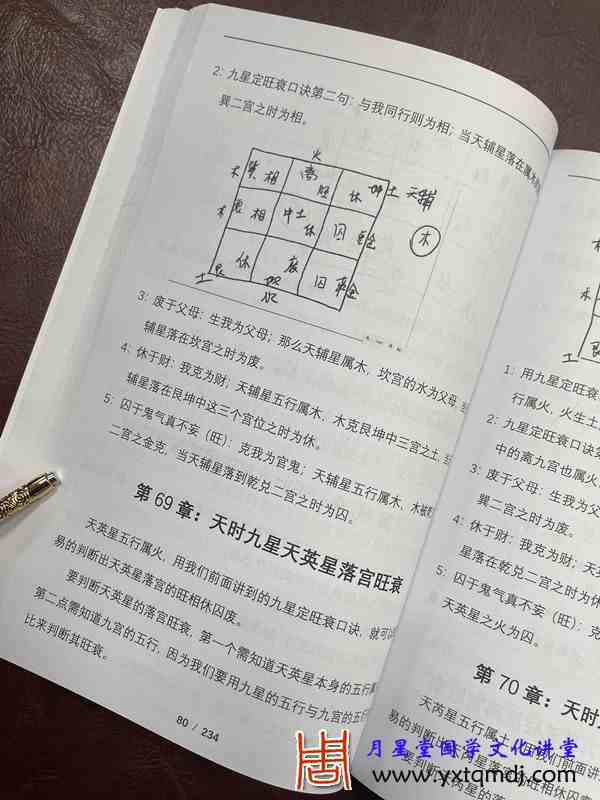 2：九星定旺衰口诀第二句：与我同行则为相；当天辅星落在属木
巽二宫之时为相。
火
木 相 离 旺 休 坤土 天辅
木 相 中土 休 囚 金 木
土 休 囚 金
3：废于父母：生我为父母；那么天辅星属木，坎宫的水为父母
辅星落在坎宫之时为废。
4：休于财：我克为财；天辅星五行属木，木克艮坤中三宫之土，
辅星落在艮坤中这三个宫位之时为休。
5：囚于鬼气真不妄（旺）：克我为官鬼；天辅星五行属木，木被
二宫之金克，当天辅星落到乾兑二宫之时为囚。
第 69 章：天时九星天英星落宫旺衰
天英星五行属火，用我们前面讲到的九星定旺衰口诀，就可以
易的判断出天英星落宫的旺相休囚废。
要判断天英星的落宫旺衰，第一个需知道天英星本身的五行属
第二点需知道九宫的五行，因为我们要用九星的五行与九宫的五行
比来判断其旺衰。
80 / 234
木
土
1：用九星定旺衰
行属火，火生土
2：九星定旺衰口诀
中的离九宫也属火
3：废于父母：生我为父
巽二宫之时为废。
4：休于财：我克为财；天
星落在乾兑二宫之时为休
5：囚于鬼气真不妄（旺）；克
天英星之火为囚。
第 70 章：天时
天芮星五行属土，用我们前面
易的判断出天芮星落宫的旺相休囚废
要判断天芮星的落
月星堂国学文化讲堂
www.yxtqmdj.com